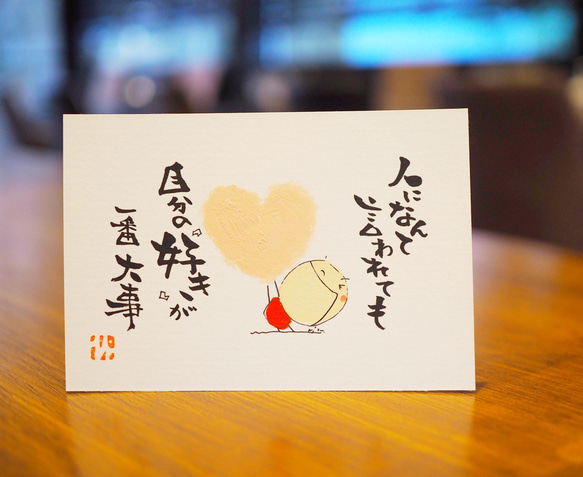 人になんて
言われても
自分の『好き』が
一番大事